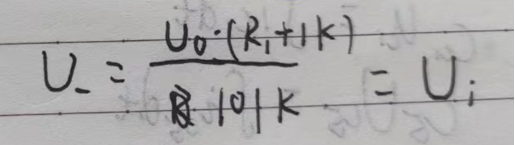 U₋ = U₀·(R₁+1K) / 101K = Uᵢ